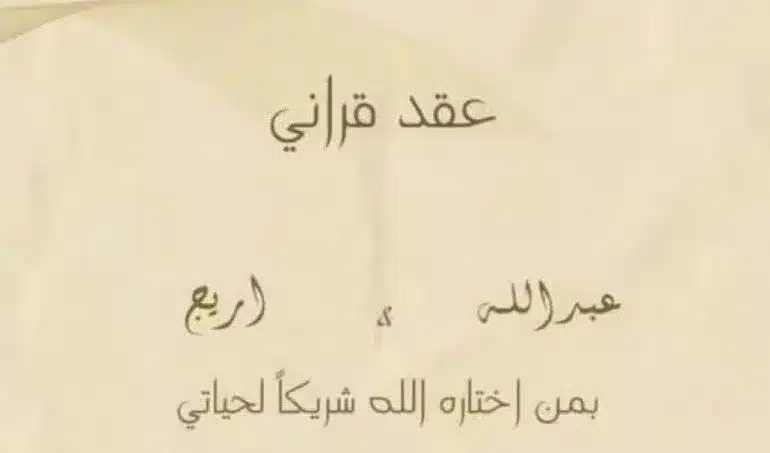 عقد قراني
عبدالله & اريج
بمن اختاره الله شريكاً لحياتي